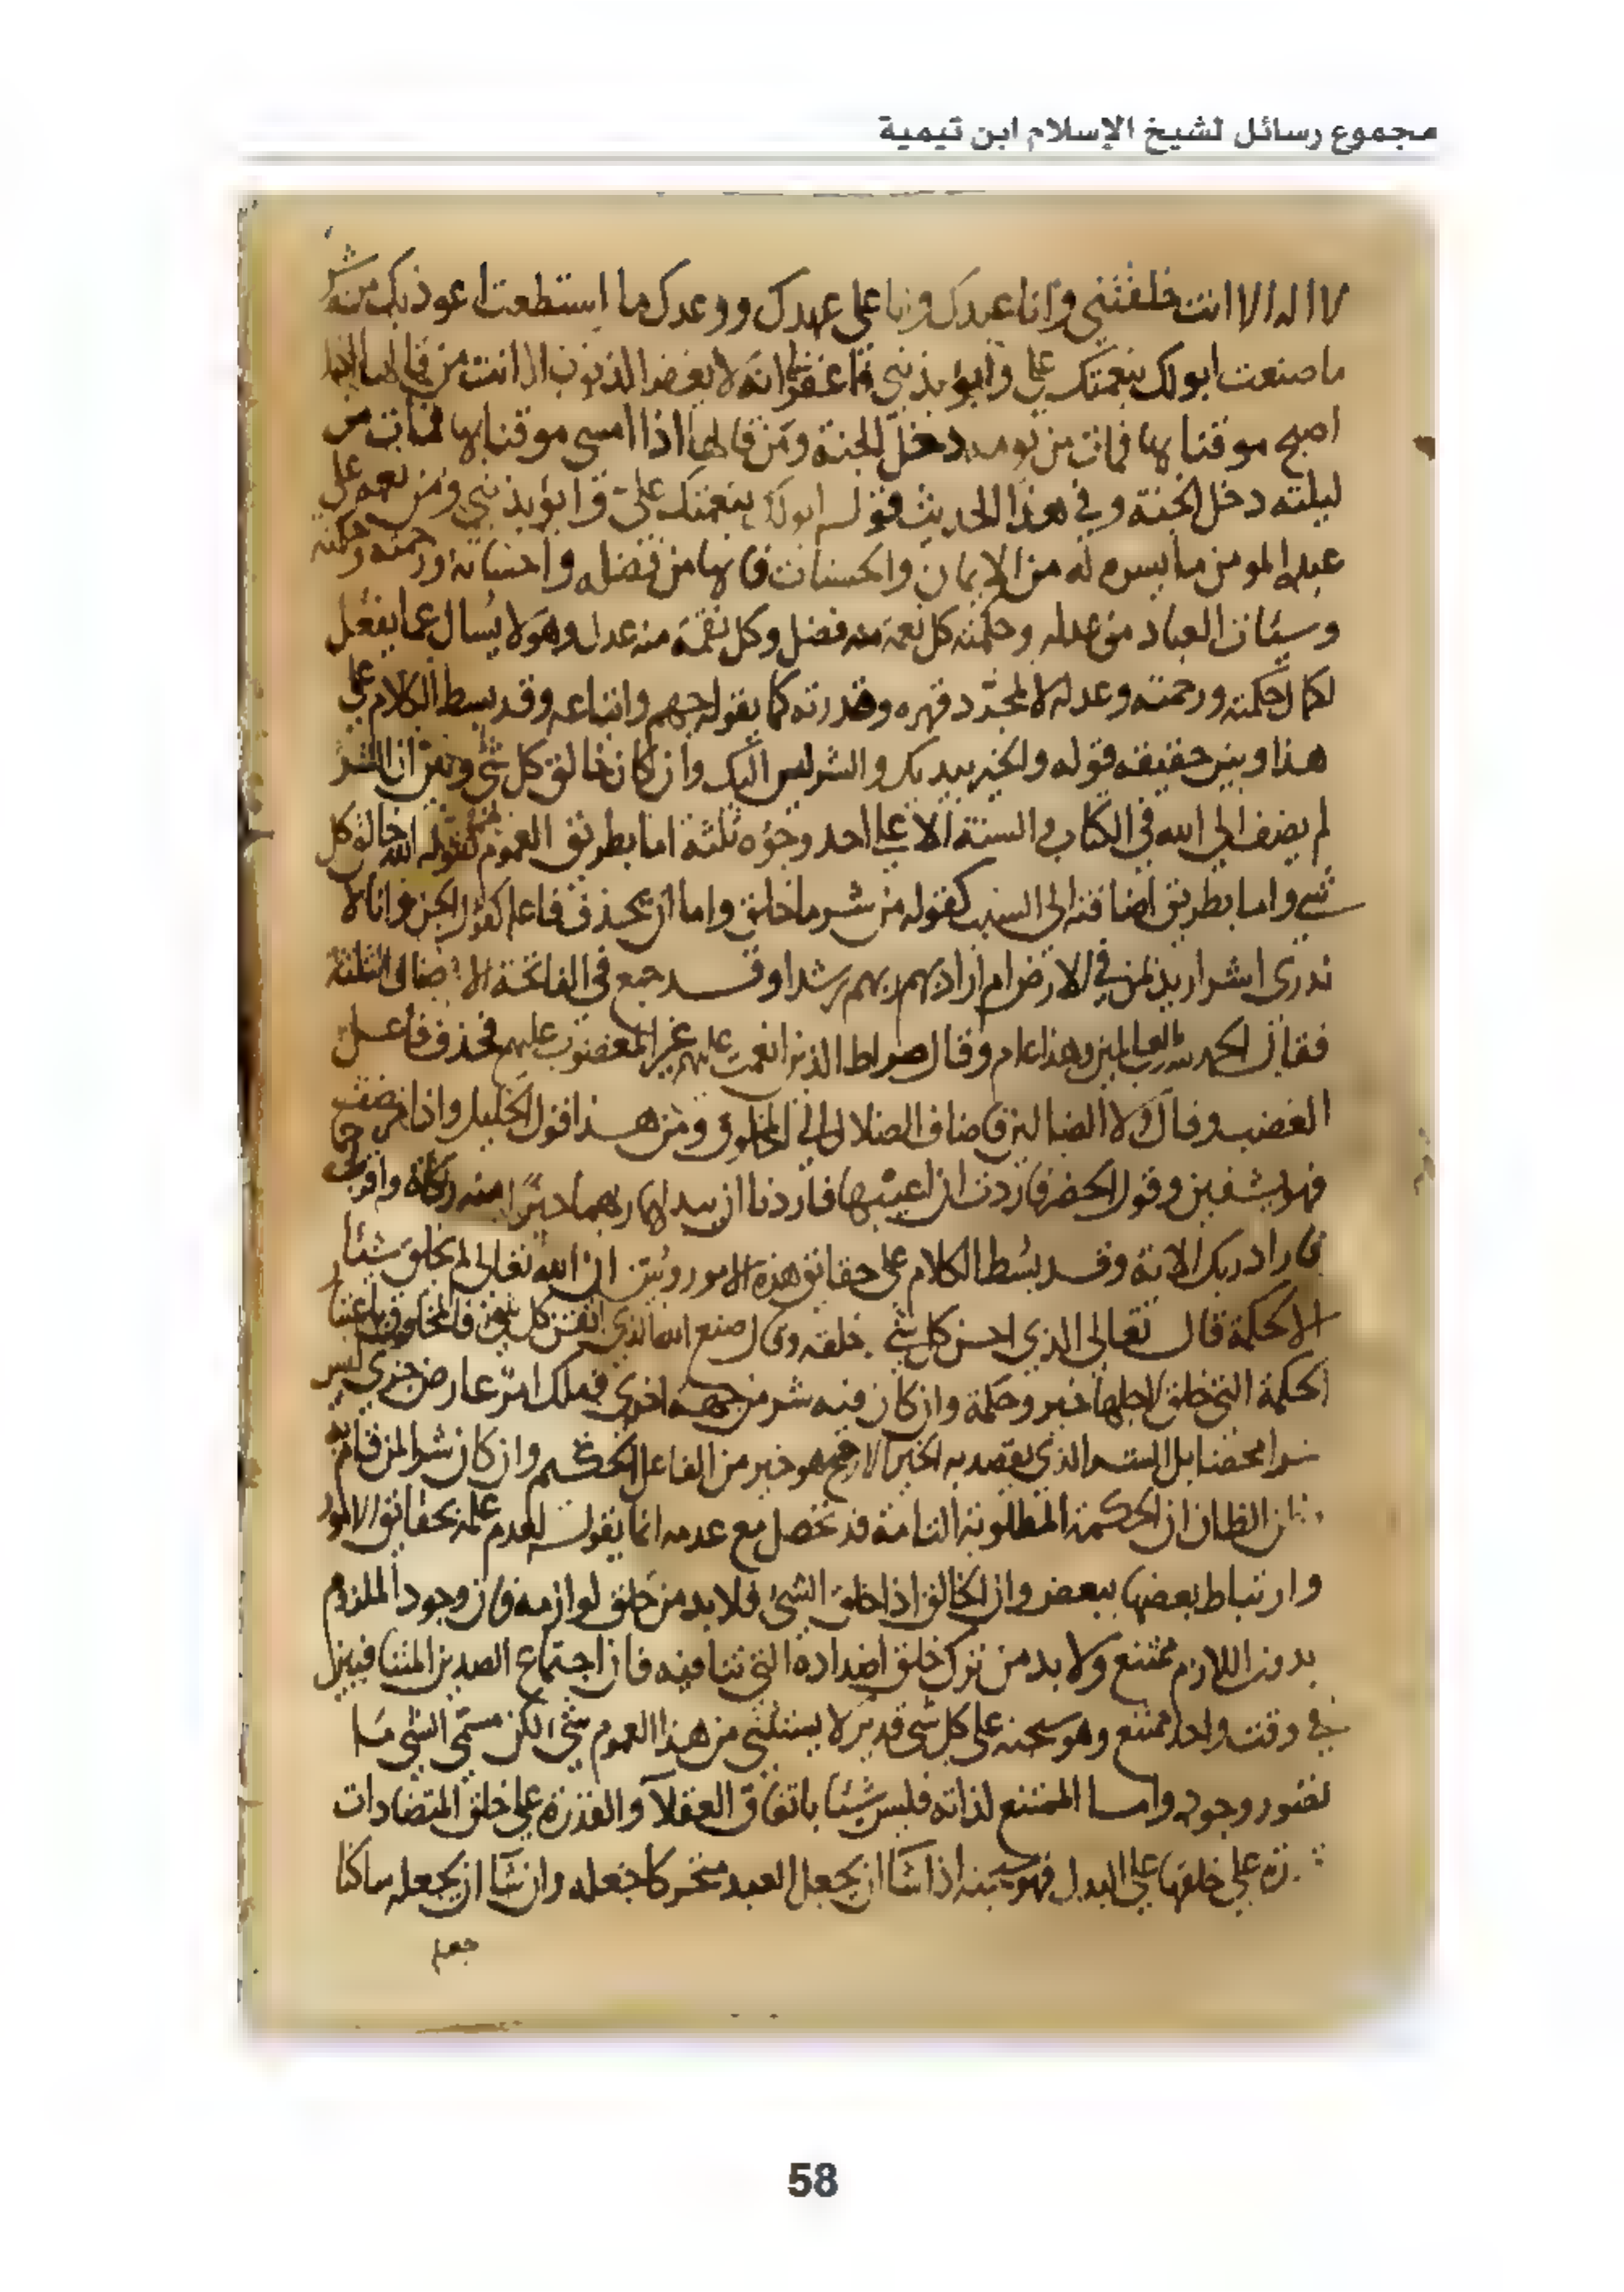 مجموع رسائل لشيخ الإسلام ابن تيمية
لا اله الا انت خلقتني وانا عبدك وانا على عهدك ووعدك ما استطعت اعوذ بك من شر
ما صنعت ابو لك بنعمتك علي وابؤ بذنبي فاغفرلي انه لا يغفر الذنوب الا انت من قالها اذا
اصبح موقنا بها فمات من يومه دخل الجنة ومن قالها اذا امسى موقنا بها فمات من
ليلته دخل الجنة وفي هذا الحديث قوله ابو لك بنعمتك علي وابؤ بذنبي ومن نعمه على
عبده المومن ما يسره له من الايمان والحسنات فانها من فضله واحسانه ورحمته وحكمته
وسيئات العباد من عدله وحكمته كل نعمة منه فضل وكل نقمة منه عدل وهو لا يُسأل عما يفعل
لكمال حكمته ورحمته وعدله لا لمجرّد قهره وقدرته كما يقوله جهم واتباعه وقد بسط الكلام على
هذا وبين حقيقة قوله والخير بيديك والشر ليس اليك وان كان خالق كل شي وبين ان الشر
لم يضف الى الله في الكتاب والسنة الا على احد وجوه ثلثة اما بطريق العموم كقوله الله خالق كل
شي واما بطريق اضافته الى السبب كقوله من شر ما خلق واما ان يحذف فاعله كقول الجن وانا لا
ندري اشر اريد بمن في الارض ام اراد بهم ربهم رشدا وقد جمع في الفاتحة الاصناف الثلثة
فقال الحمد لله رب العالمين وهذا عام وقال صراط الذين انعمت عليهم غير المغضوب عليهم فحذف فاعل
الغضب وقال ولا الضالين فاضاف الضلال الى المخلوق ومن هذا قول الخليل واذا مرضت
فهو يشفين وقول الخضر فاردت ان اعيبها فاردنا ان يبدلهما ربهما خيرًا منه زكاة واقرب رحما
فاراد ربك الاية وقد بُسط الكلام على حقائق هذه الامور وبُين ان الله تعالى لم يخلق شيئا
الا لحكمة قال تعالى الذي احسن كل شي خلقه وقال صنع الله الذي اتقن كل شي فالمخلوق باعتبار
الحكمة التي خلق لاجلها خير وحكمة وان كان فيه شر من جهة اخرى فذلك امر عارض جزئي ليس
شرا محضا بل الشر الذي يقصد به الخير الارجح هو خير من الفاعل الحكيم وان كان شرا لمن قام به
ظن الظان ان الحكمة المطلوبة التامة قد تحصل مع عدمه انما يقوله لعدم علمه بحقائق الامور
وارتباط بعضها ببعض وان الخالق اذا خلق الشيء فلا بد من خلق لوازمه فان وجود الملزوم
بدون اللازم ممتنع ولا بد من ترك خلق اضداده التي تنافيه فان اجتماع الضدين المتنافيين
في وقت واحد ممتنع وهو سبحنه على كل شي قدير لا يستثنى من هذا العموم شي لكن مسمى الشي ما
تصور وجوده واما الممتنع لذاته فليس شيئا باتفاق العقلا والقدرة على خلق المتضادات
على خلقها على البدل فهو سبحنه اذا شا ان يجعل العبد متحركا جعله وان شا ان يجعله ساكنا
جعله
58